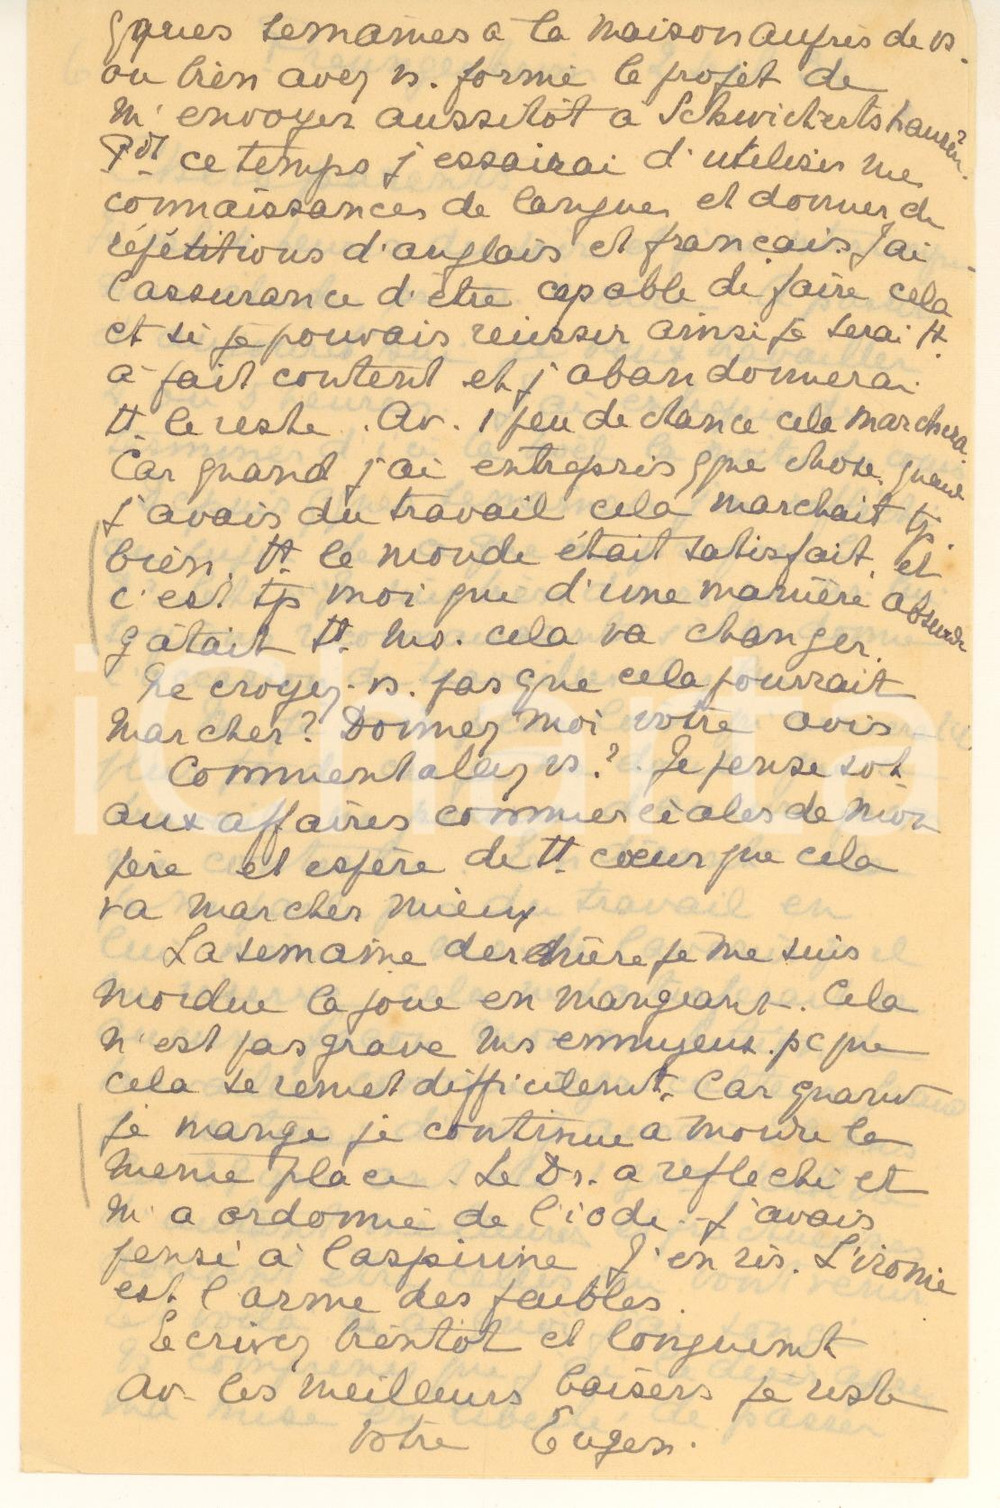 qques semaines à la maison auprès de vs.
ou bien avez vs. formé le projet de
m'envoyer aussitôt à Schwickertshausen?
Pdt ce temps j'essairai d'utiliser mes
connaissances de langues et donner des
répétitions d'anglais et français. J'ai
l'assurance d'être capable de faire cela
et si je pouvais reüssir ainsi je serai tt.
à fait content et j'abandonnerai
tt. le reste. Av. 1 peu de chance cela marchera.
Car quand j'ai entrepris qque chose, quand
j'avais du travail cela marchait tjs.
bien. tt. le monde était satisfait. et
c'est tjs moi que d'une manière absurde
gâtait tt. ms. cela va changer.
Ne croyez-vs. pas que cela pourrait
marcher? Donnez moi votre avis
Comment allez vs.? Je pense
aux affaires commerciales de mon
père et espère de tt. cœur que cela
va marcher mieux
La semaine dernière je me suis
mordue la joue en mangeant. Cela
n'est pas grave ms ennuyeux. pcque
cela se remet difficilemt. Car quand
je mange je continue a mordre la
meme place. Le Dr. a reflechi et
m'a ordonné de l'iode. J'avais
pensé à l'aspirine J'en ris. L'ironie
est l'arme des faibles.
Ecrivez bientôt et longuemt
Av. les meilleurs baisers je reste
Votre Eugen.
ichaia